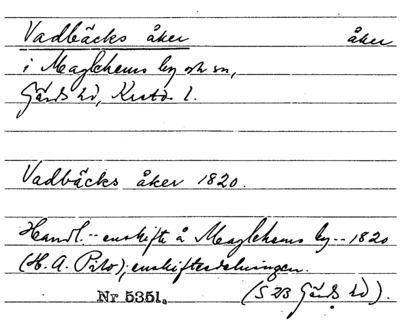 Vadbäcks åker åker
i Maglehems by och sn,
Gärds hd, Krstds l.
Vadbäcks åker 1820.
Handl. -- enskifte å Maglehems by -- 1820
(H. A. Pihlo); enskiftesdelningen.
Nr 5351. (S 23 Gärds hd).